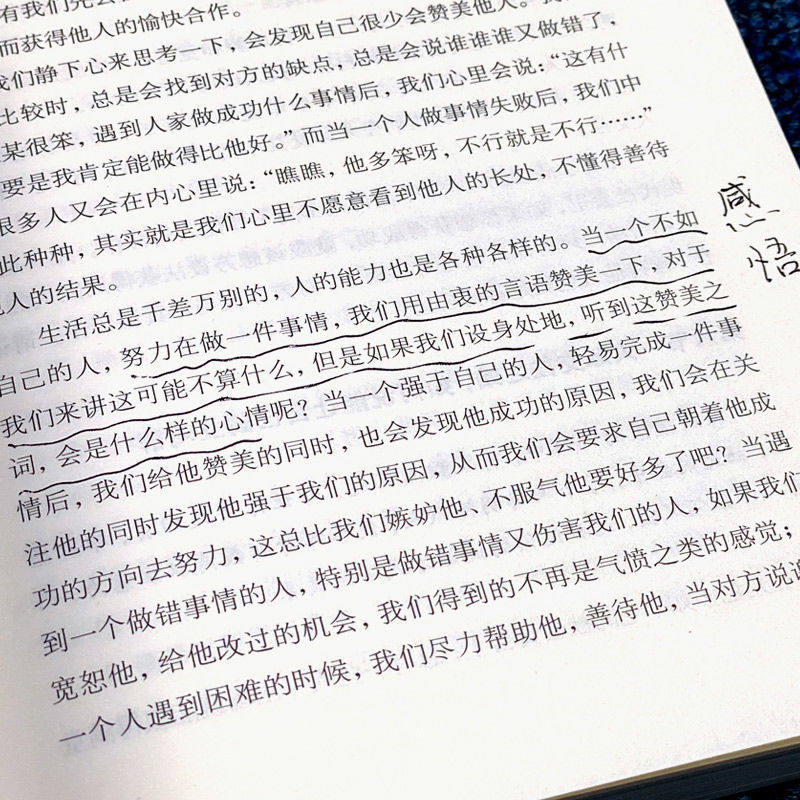 有我们先去
而获得他人的愉快合作。
们静下心来思考一下，会发现自己很少会赞美他人。我
比较时，总是会找到对方的缺点，总是会说谁谁谁又做错了，
某很笨，遇到人家做成功什么事情后，我们心里会说：“这有什
要是我肯定能做得比他好。”而当一个人做事情失败后，我们中
很多人又会在内心里说：“瞧瞧，他多笨呀，不行就是不行……”
此种种，其实就是我们心里不愿意看到他人的长处，不懂得善待
他人的结果。
生活总是千差万别的，人的能力也是各种各样的。当一个不如
自己的人，努力在做一件事情，我们用由衷的言语赞美一下，对于
我们来讲这可能不算什么，但是如果我们设身处地，听到这赞美之
词，会是什么样的心情呢？当一个强于自己的人，轻易完成一件事
情后，我们给他赞美的同时，也会发现他成功的原因，我们会在关
注他的同时发现他强于我们的原因，从而我们会要求自己朝着他成
功的方向去努力，这总比我们嫉妒他、不服气他要好多了吧？当遇
到一个做错事情的人，特别是做错事情又伤害我们的人，如果我们
宽恕他，给他改过的机会，我们得到的不再是气愤之类的感觉；
一个人遇到困难的时候，我们尽力帮助他，善待他，当对方说
感
悟